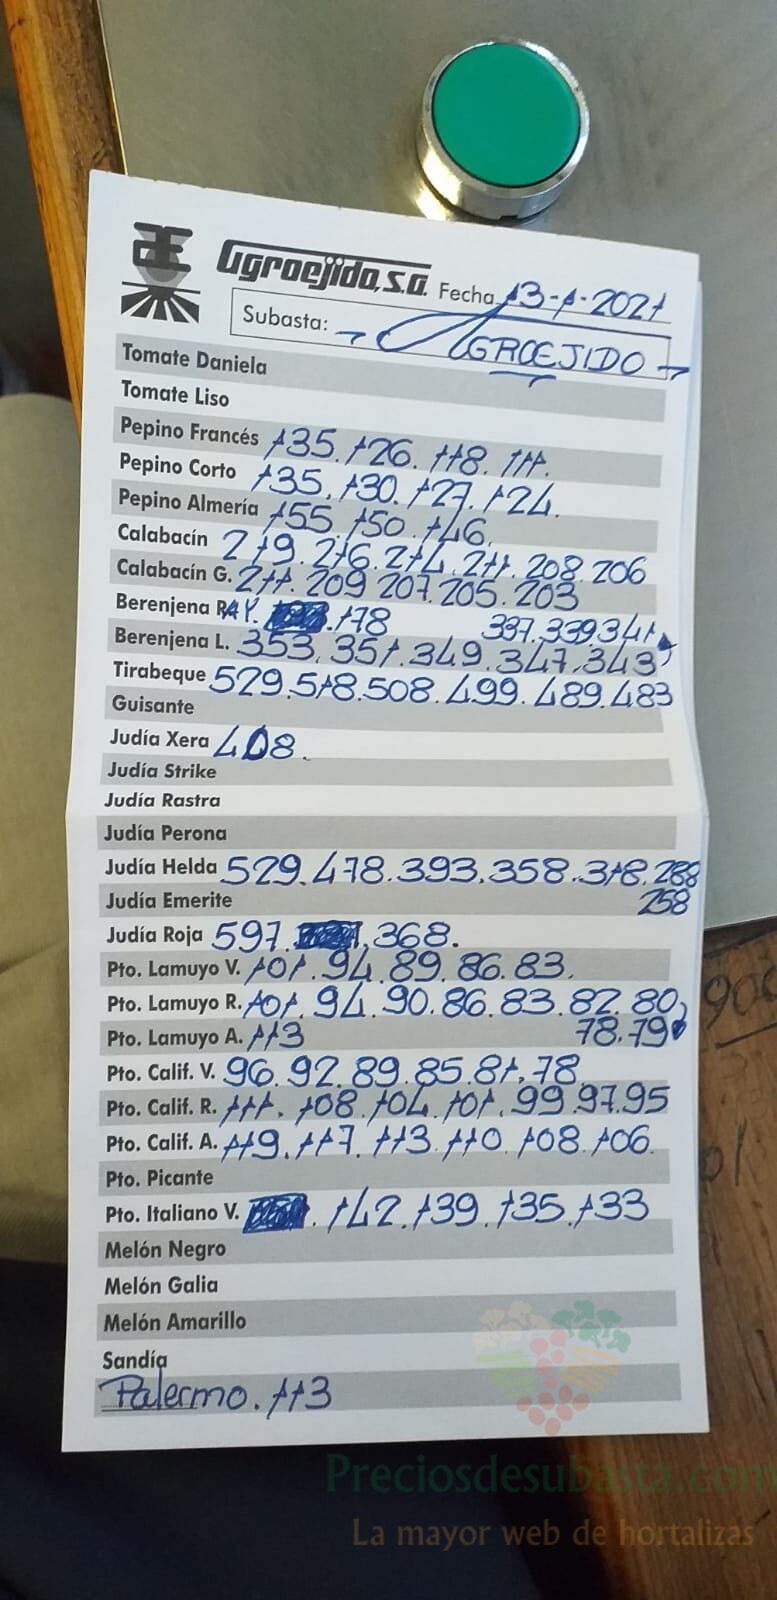 Agroejido, s.a. Fecha 13-1-2021
Subasta: AGROEJIDO
Tomate Daniela
Tomate Liso
Pepino Francés 135. 126. 118. 111.
Pepino Corto 135. 130. 127. 124.
Pepino Almería 155. 150. 146.
Calabacín 219. 216. 214. 211. 208. 206
Calabacín G. 211. 209 207. 205. 203
Berenjena RAY. 178 337. 339 341
Berenjena L. 353. 351. 349. 347. 343
Tirabeque 529. 518. 508. 499. 489. 483
Guisante
Judía Xera 408.
Judía Strike
Judía Rastra
Judía Perona
Judía Helda 529. 478. 393. 358. 318. 288
Judía Emerite 258
Judía Roja 597. 368.
Pto. Lamuyo V. 101. 94. 89. 86. 83.
Pto. Lamuyo R. 101. 94. 90. 86. 83. 82. 80
Pto. Lamuyo A. 113 78. 79
Pto. Calif. V. 96. 92. 89. 85. 81. 78
Pto. Calif. R. 111. 108. 104. 101. 99. 97. 95
Pto. Calif. A. 119. 117. 113. 110. 108. 106.
Pto. Picante
Pto. Italiano V. 142. 139. 135. 133
Melón Negro
Melón Galia
Melón Amarillo
Sandía
Palermo. 113
Preciosdesubasta.com
La mayor web de hortalizas